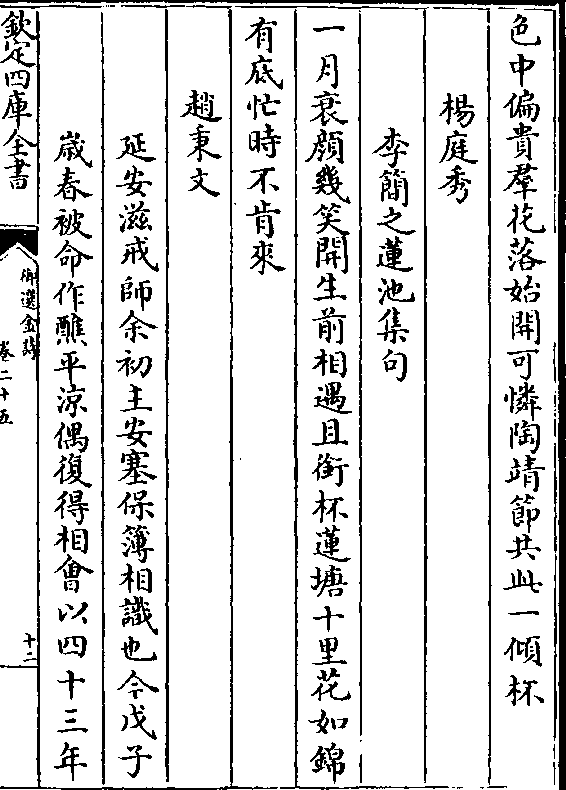 色中偏貴羣花落始開可憐陶靖節共此一傾杯
楊庭秀
李簡之蓮池集句
一月衰顔幾笑開生前相遇且銜杯蓮塘十里花如錦
有底忙時不肯來
趙秉文
延安滋戒師余初主安塞保簿相識也今戊子
嵗春被命作醮平涼偶復得相會以四十三年
欽定四庫全書
御選金詩
卷二十五
十二